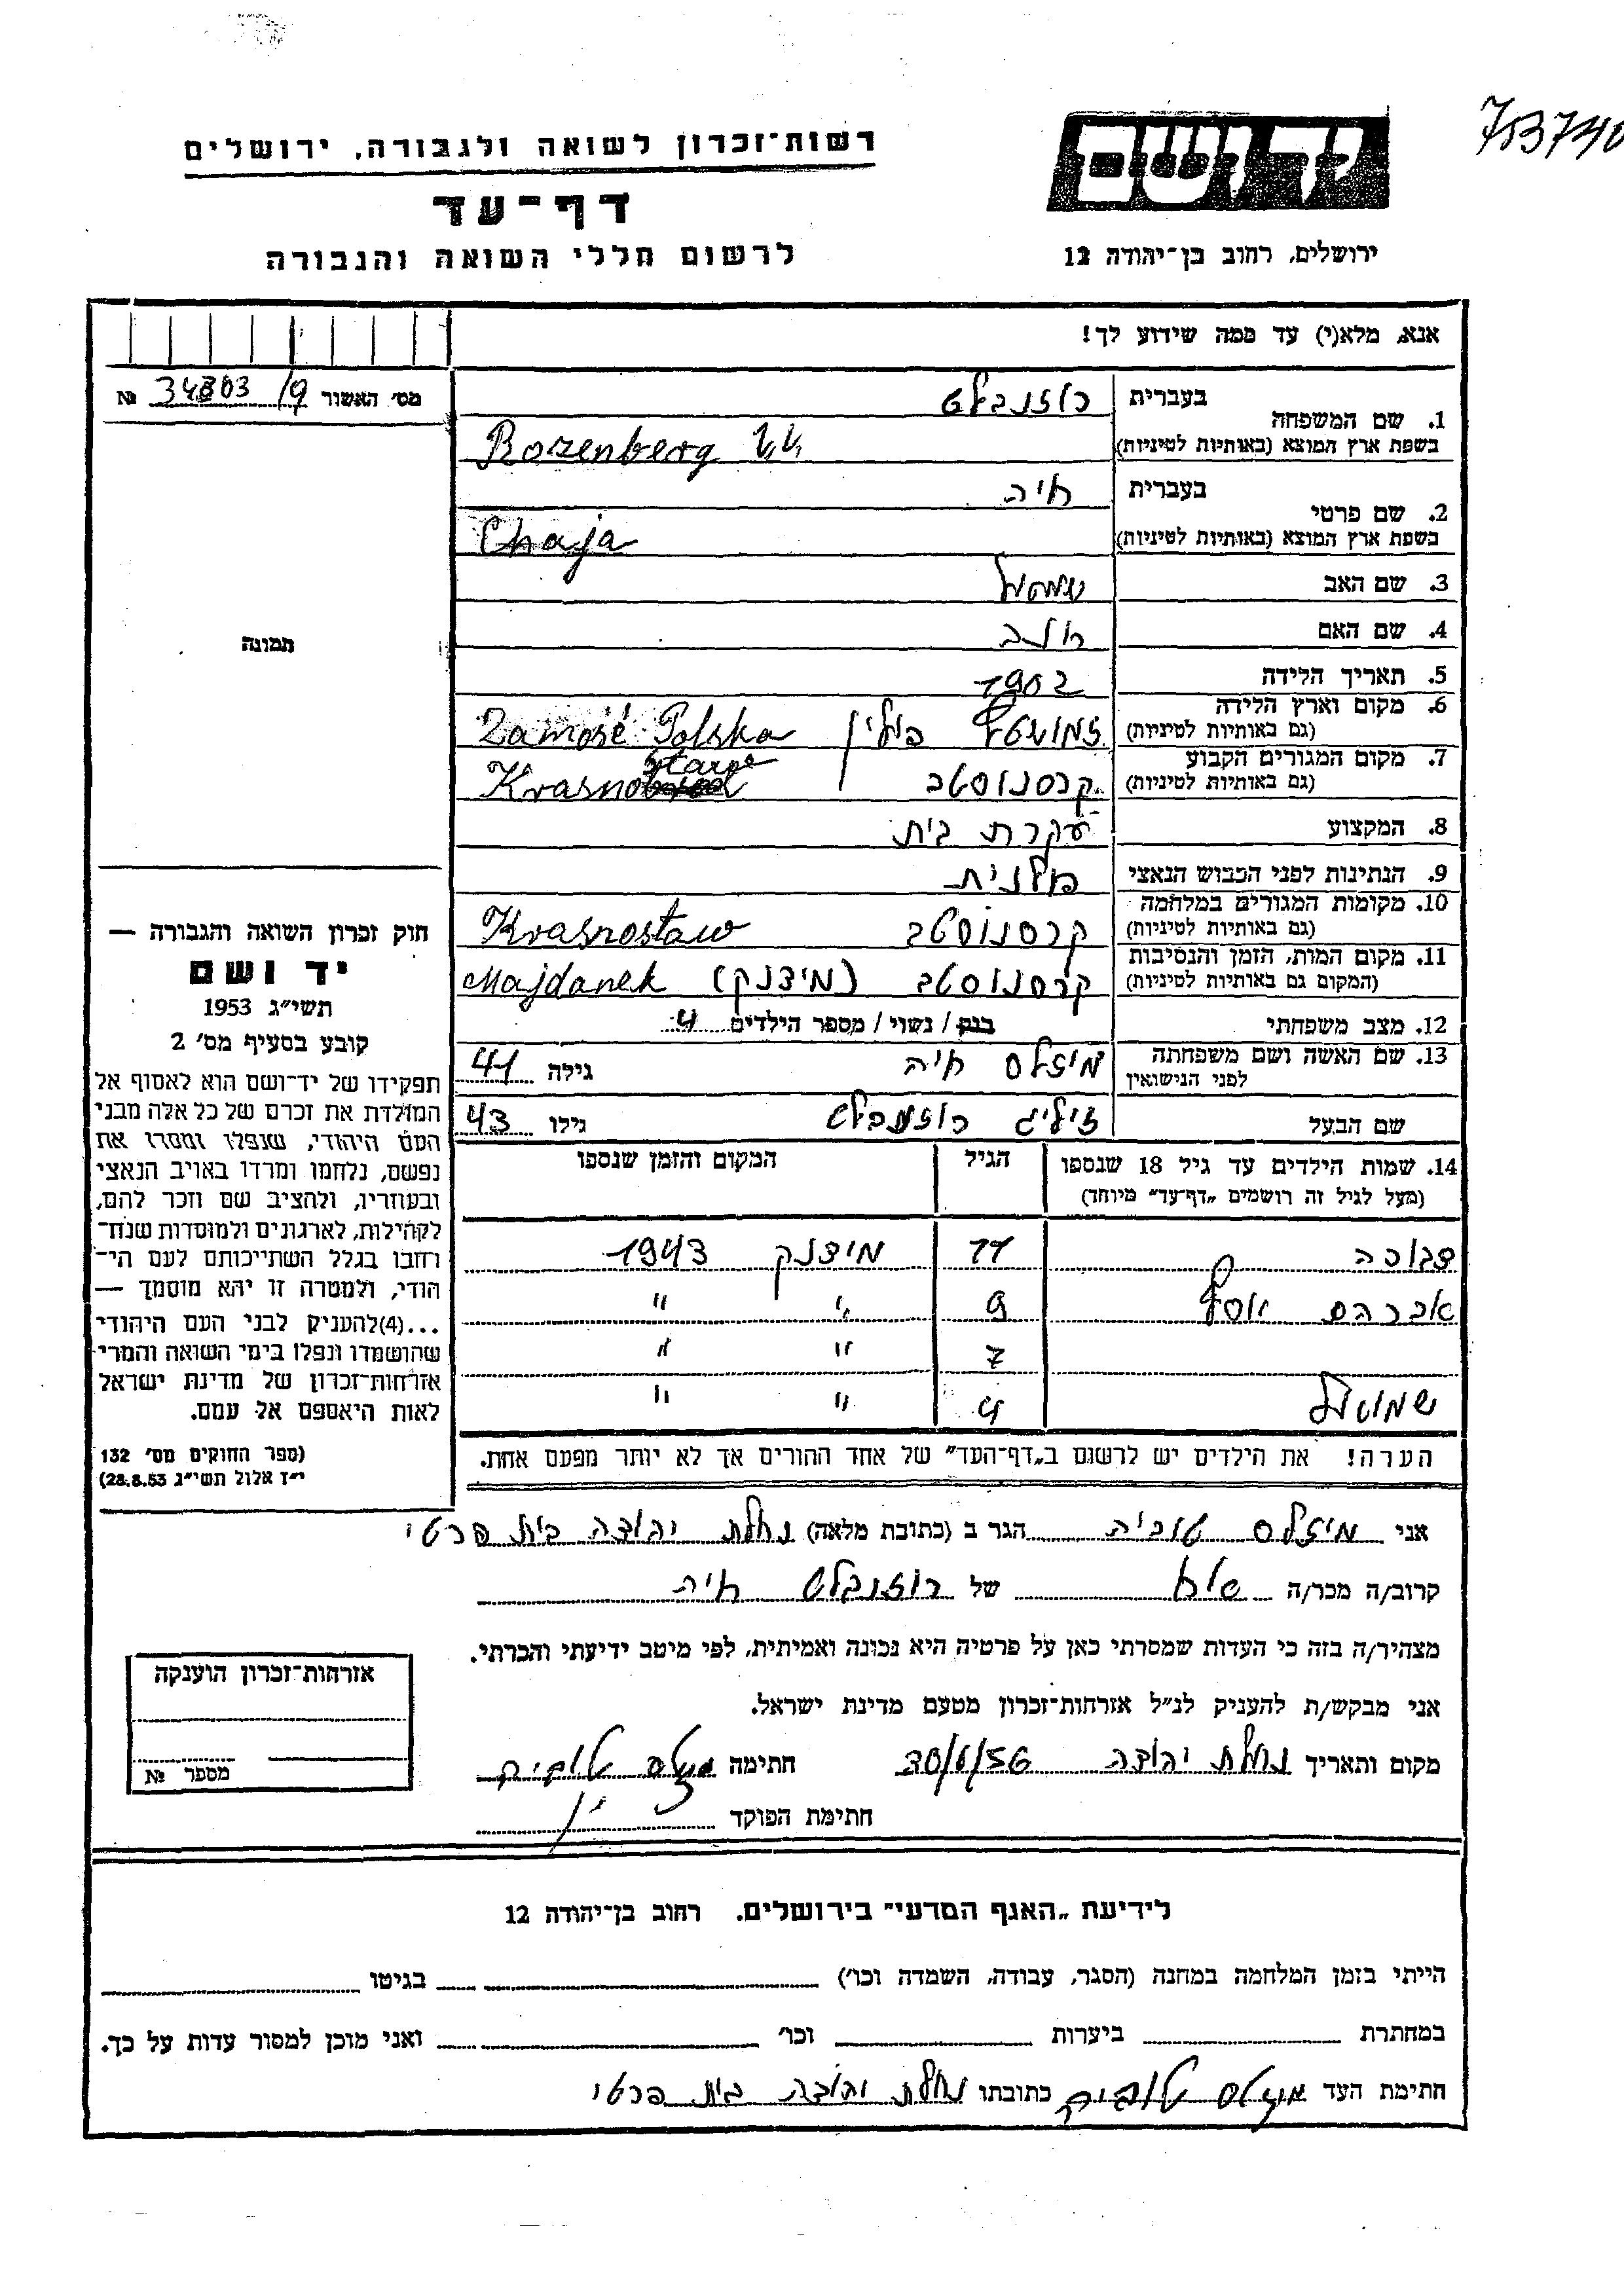 753740
יד ושם
רשות־זכרון לשואה ולגבורה, ירושלים
דף־עד
לרשום חללי השואה והגבורה
ירושלים, רחוב בן־יהודה 12
אנא, מלא(י) עד כמה שידוע לך!
מס׳ האשור 34803/9 №
תמונה
1. שם המשפחה
בעברית רוזנבלט
בשפת ארץ המוצא (באותיות לטיניות) Rozenberg
2. שם פרטי
בעברית חיה
בשפת ארץ המוצא (באותיות לטיניות) Chaja
3. שם האב שמואל
4. שם האם
5. תאריך הלידה 1902
6. מקום וארץ הלידה
(גם באותיות לטיניות) פולין Zamość Polska
7. מקום המגורים הקבוע
(גם באותיות לטיניות) קרסנוסטב Krasno stawe
8. המקצוע עקרת בית
9. הנתינות לפני הכבוש הנאצי פולנית
10. מקומות המגורים במלחמה
(גם באותיות לטיניות) קרסנוסטב Krasnostaw
11. מקום המות, הזמן והנסיבות
(המקום גם באותיות לטיניות) קרסנוסטב (מידנק) Majdanek
12. מצב משפחתי רווק / נשוי / מספר הילדים 4
13. שם האשה ושם משפחתה
לפני הנישואין מיזלס חיה גילה 41
שם הבעל זליג רוזנבלט גילו 43
14. שמות הילדים עד גיל 18 שנספו הגיל המקום והזמן שנספו
(מעל לגיל זה רושמים „דף־עד” מיוחד)
דבורה 11 מידנק 1943
אברהם יוסף 9 " "
7 " "
שמואל 4 " "
הערה! את הילדים יש לרשום ב„דף־העד” של אחד ההורים אך לא יותר מפעם אחת.
חוק זכרון השואה והגבורה —
יד ושם
תשי״ג 1953
קובע בסעיף מס׳ 2
תפקידו של יד־ושם הוא לאסוף אל
המולדת את זכרם של כל אלה מבני
העם היהודי, שנפלו ומסרו את
נפשם, נלחמו ומרדו באויב הנאצי
ובעוזריו, ולהציב שם וזכר להם,
לקהילות, לארגונים ולמוסדות שנח־
רבו בגלל השתייכותם לעם הי־
הודי, ולמטרה זו יהא מוסמך —
...(4)להעניק לבני העם היהודי
שהושמדו ונפלו בימי השואה והמרי
אזרחות־זכרון של מדינת ישראל
לאות היאספם אל עמם.
(ספר החוקים מס׳ 132
י״ז אלול תשי״ג 28.8.53)
אני מיזלס טוביה הגר ב (כתובת מלאה) נחלת יהודה בית פרטי
קרוב/ה מכר/ה של רוזנבלט חיה
מצהיר/ה בזה כי העדות שמסרתי כאן על פרטיה היא נכונה ואמיתית, לפי מיטב ידיעתי והכרתי.
אני מבקש/ת להעניק לנ״ל אזרחות־זכרון מטעם מדינת ישראל.
מקום ותאריך נחלת יהודה 30/6/56 חתימה מיזלס טוביה
חתימת הפוקד
אזרחות־זכרון הוענקה
מספר №
לידיעת „האגף המדעי” בירושלים. רחוב בן־יהודה 12
הייתי בזמן המלחמה במחנה (הסגר, עבודה, השמדה וכו׳) בגיטו
במחתרת ביערות וכו׳ ואני מוכן למסור עדות על כך.
חתימת העד מיזלס טוביה כתובתו נחלת יהודה בית פרטי